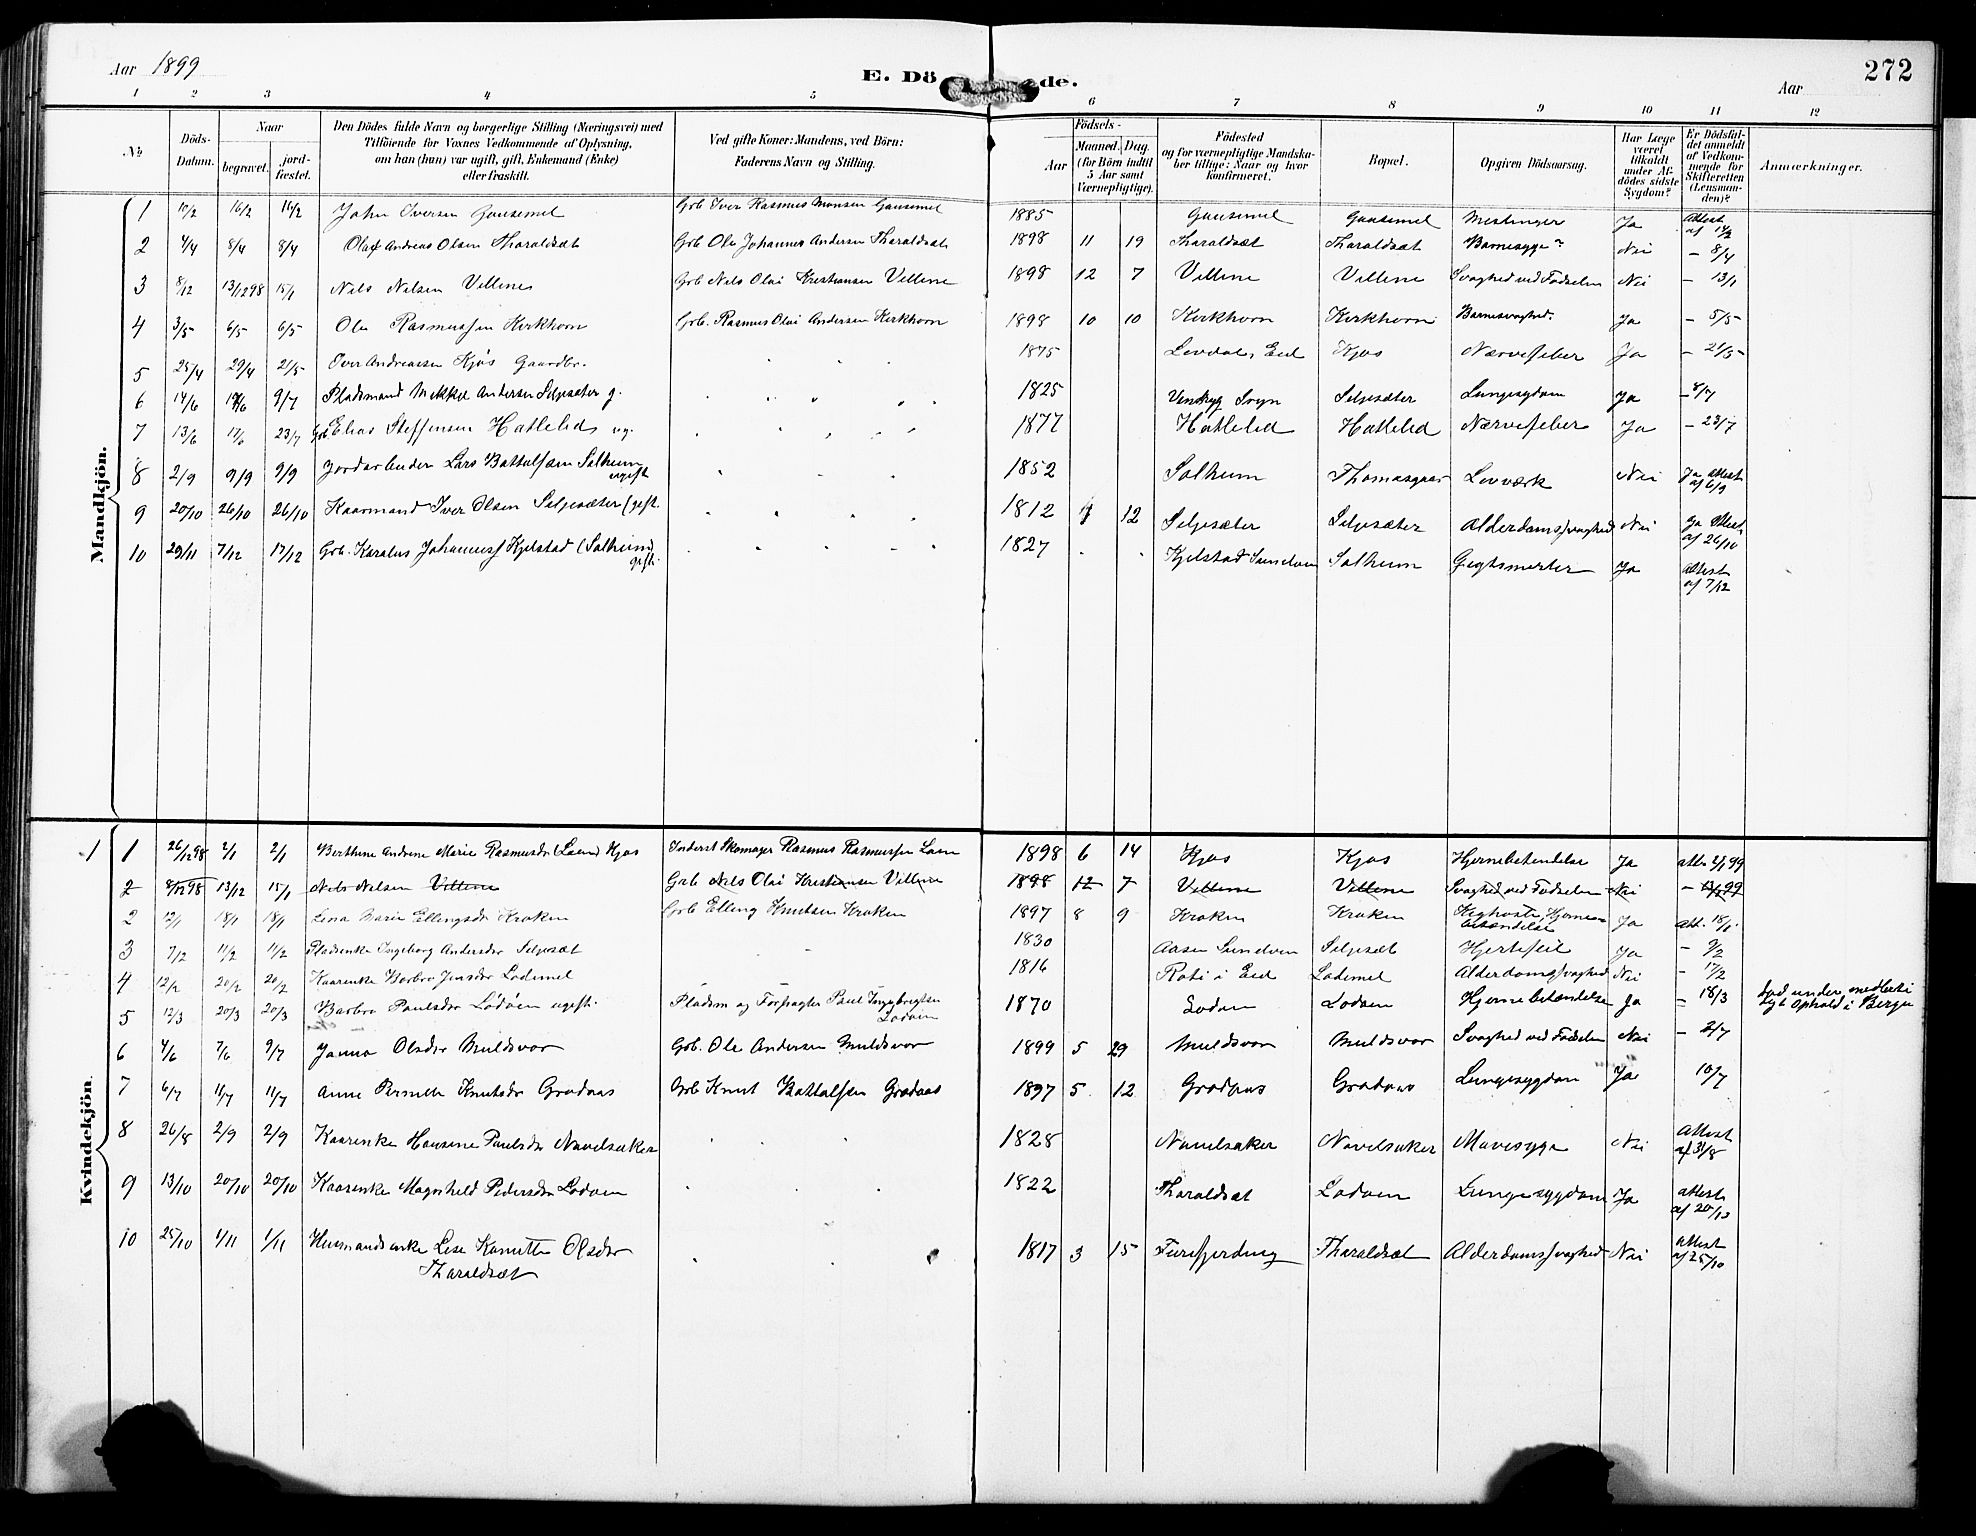 Aar 1899
E. Dö de.
Aar
272
1 2 3 4 5 6 7 8 9 10 11 12
No
Döds-Datum.
Naar
begravet.
jord-fæstet.
Den Dödes fulde Navn og borgerlige Stilling (Næringsvei) med
Tilföiende for Voxnes Vedkommende af Oplysning,
om han (hun) var ugift, gift, Enkemand (Enke)
eller fraskilt.
Ved gifte Koner: Mandens, ved Börn:
Faderens Navn og Stilling.
Födsels-
Aar
Maaned. Dag.
(for Börn indtil
5 Aar samt
Værnepligtige).
Födested
og for værnepligtige Mandska-
ber tillige: Naar og hvor
konfirmeret.
Bopæl.
Opgiven Dödsaarsag.
Har Læge
været
tilkaldt
under Af-
dödes sidste
Sygdom?
Er Dödsfal-
det anmeldt
af Vedkom-
mende for
Skifteretten
(Lensman-
den)?
Anmærkninger.
Mandkjön.
1 10/2 16/2 16/2 John Iversen Gausemel Grb Iver Rasmus Monsen Gausemel 1885 Gausemel Gausemel Ja Attest
2 4/4 8/4 8/4 Olaf Andreas Olsen Tharaldsæt Grb Ole Johannes Andersen Tharaldsæt 1898 11 19 Tharaldsæt Tharaldsæt Barnesyge Nei - 8/4
3 8/12 13/12 98 15/1 Nils Nilsen Vellene Grb Nils Olai Kristiansen Vellene 1898 12 7 Vellene Vellene Svaghed ved Födselen Nei - 13/1
4 3/5 6/5 6/5 Ole Rasmussen Kirkhorn Grb. Rasmus Olai Andersen Kirkhorn 1898 10 10 Kirkhorn Kirkhorn Barnesvaghed. Ja - 5/5
5 25/4 29/4 21/5 Iver Andreassen Kjös Gaardbr. 1875 Levdal, Eid Kjos Nærvefeber Ja - 21/5
6 14/6 9/7 Pladsmand Mikkel Andersen Seljesæter g. 1825 Seljesæter Lungesygdom Ja - 8/7
7 13/6 17/6 23/7 Grb Elias Steffensen Hatleled ug. 1877 Hatleled Hatleled Nærvefeber Ja - 23/7
8 2/9 9/9 9/9 Lars Battalfsen Solheim
ugift 1852 Solheim Thomasgaard Levværk Nei Ja attest
af 6/9
9 20/10 26/10 26/10 Kaarmand Iver Olsen Seljesæter (gift. 1812 12 Seljesæter Seljesæter Alderdomssvaghed Nei Ja Attest
af 26/10
10 29/11 7/12 17/12 Grb. Karolus Johanness Kjelstad (Solheim)
gift. 1827 Kjelstad Sundven Solheim Gigtsmerter Ja Attest
af 7/12
Kvindekjön.
1 1 26/12 98 2/1 2/1 Berthine Andrine Marie Rasmusdr (Loen) Kjos Inderst Skomager Rasmus Rasmussen Loen 1898 6 14 Kjos Kjos Hjernebetændelse Ja att. 2/1 99
2 8/12 98 13/12 15/1 Nils Nilsen Vellene Grb Nils Olai Kristiansen Vellene 1898 12 7 Vellene Vellene Svaghed ved Födselen Nei - 13/1 99
2 12/1 18/1 18/1 Lina Marie Ellingsdr Kroken Grb Elling Knutsen Kroken 1897 8 9 Kroken Kroken Kighoste, Hjerne-
betændelse Ja att. 18/1
3 7/12 11/2 11/2 Pladsenke Ingeborg Andersdr Seljesæt 1830 Aasen Sundven Seljesæt Hjertefeil Ja - 9/2
4 12/2 20/2 20/2 Kaarenke Barbro Jensdr Lodemel 1816 Roti i Eid Lodemel Alderdomssvaghed Nei - 17/2
5 12/3 20/3 20/3 Barbro Paulsdr Lodöen ugift. Pladsm og Forpagter Paul Ingebrigtsen
Lodöen 1870 Lodöen Lodöen Hjernebetændelse Ja - 18/3 död under midlerti
digt Ophold i Bergen
6 4/6 7/6 9/7 Janna Olsdr Muldsvor Grb. Ole Andersen Muldsvor 1899 5 29 Muldsvor Muldsvor Svaghed ved Födselen Nei - 2/7
7 6/7 11/7 11/7 Anne Pernille Knutsdr Grodaas Grb Knut Battalfsen Grodaas 1897 5 12 Grodaas Grodaas Lungesygdom Ja 10/7
8 26/8 2/9 2/9 Kaarenke Hansine Paulsdr Navelsaker 1828 Navelsaker Navelsaker Mavesyge Nei Attest
af 31/8
9 13/10 20/10 20/10 Kaarenke Magnhild Pedersdr Lodöen 1822 Tharaldsæt Lodöen Lungesygdom Ja attest
af 20/10
10 25/10 1/11 1/11 Husmandsenke Lise Kanutte Olsdr
Tharaldsæt 1817 3 15 Furefjerding Tharaldsæt Alderdomssvaghed Nei Attest
af 25/10